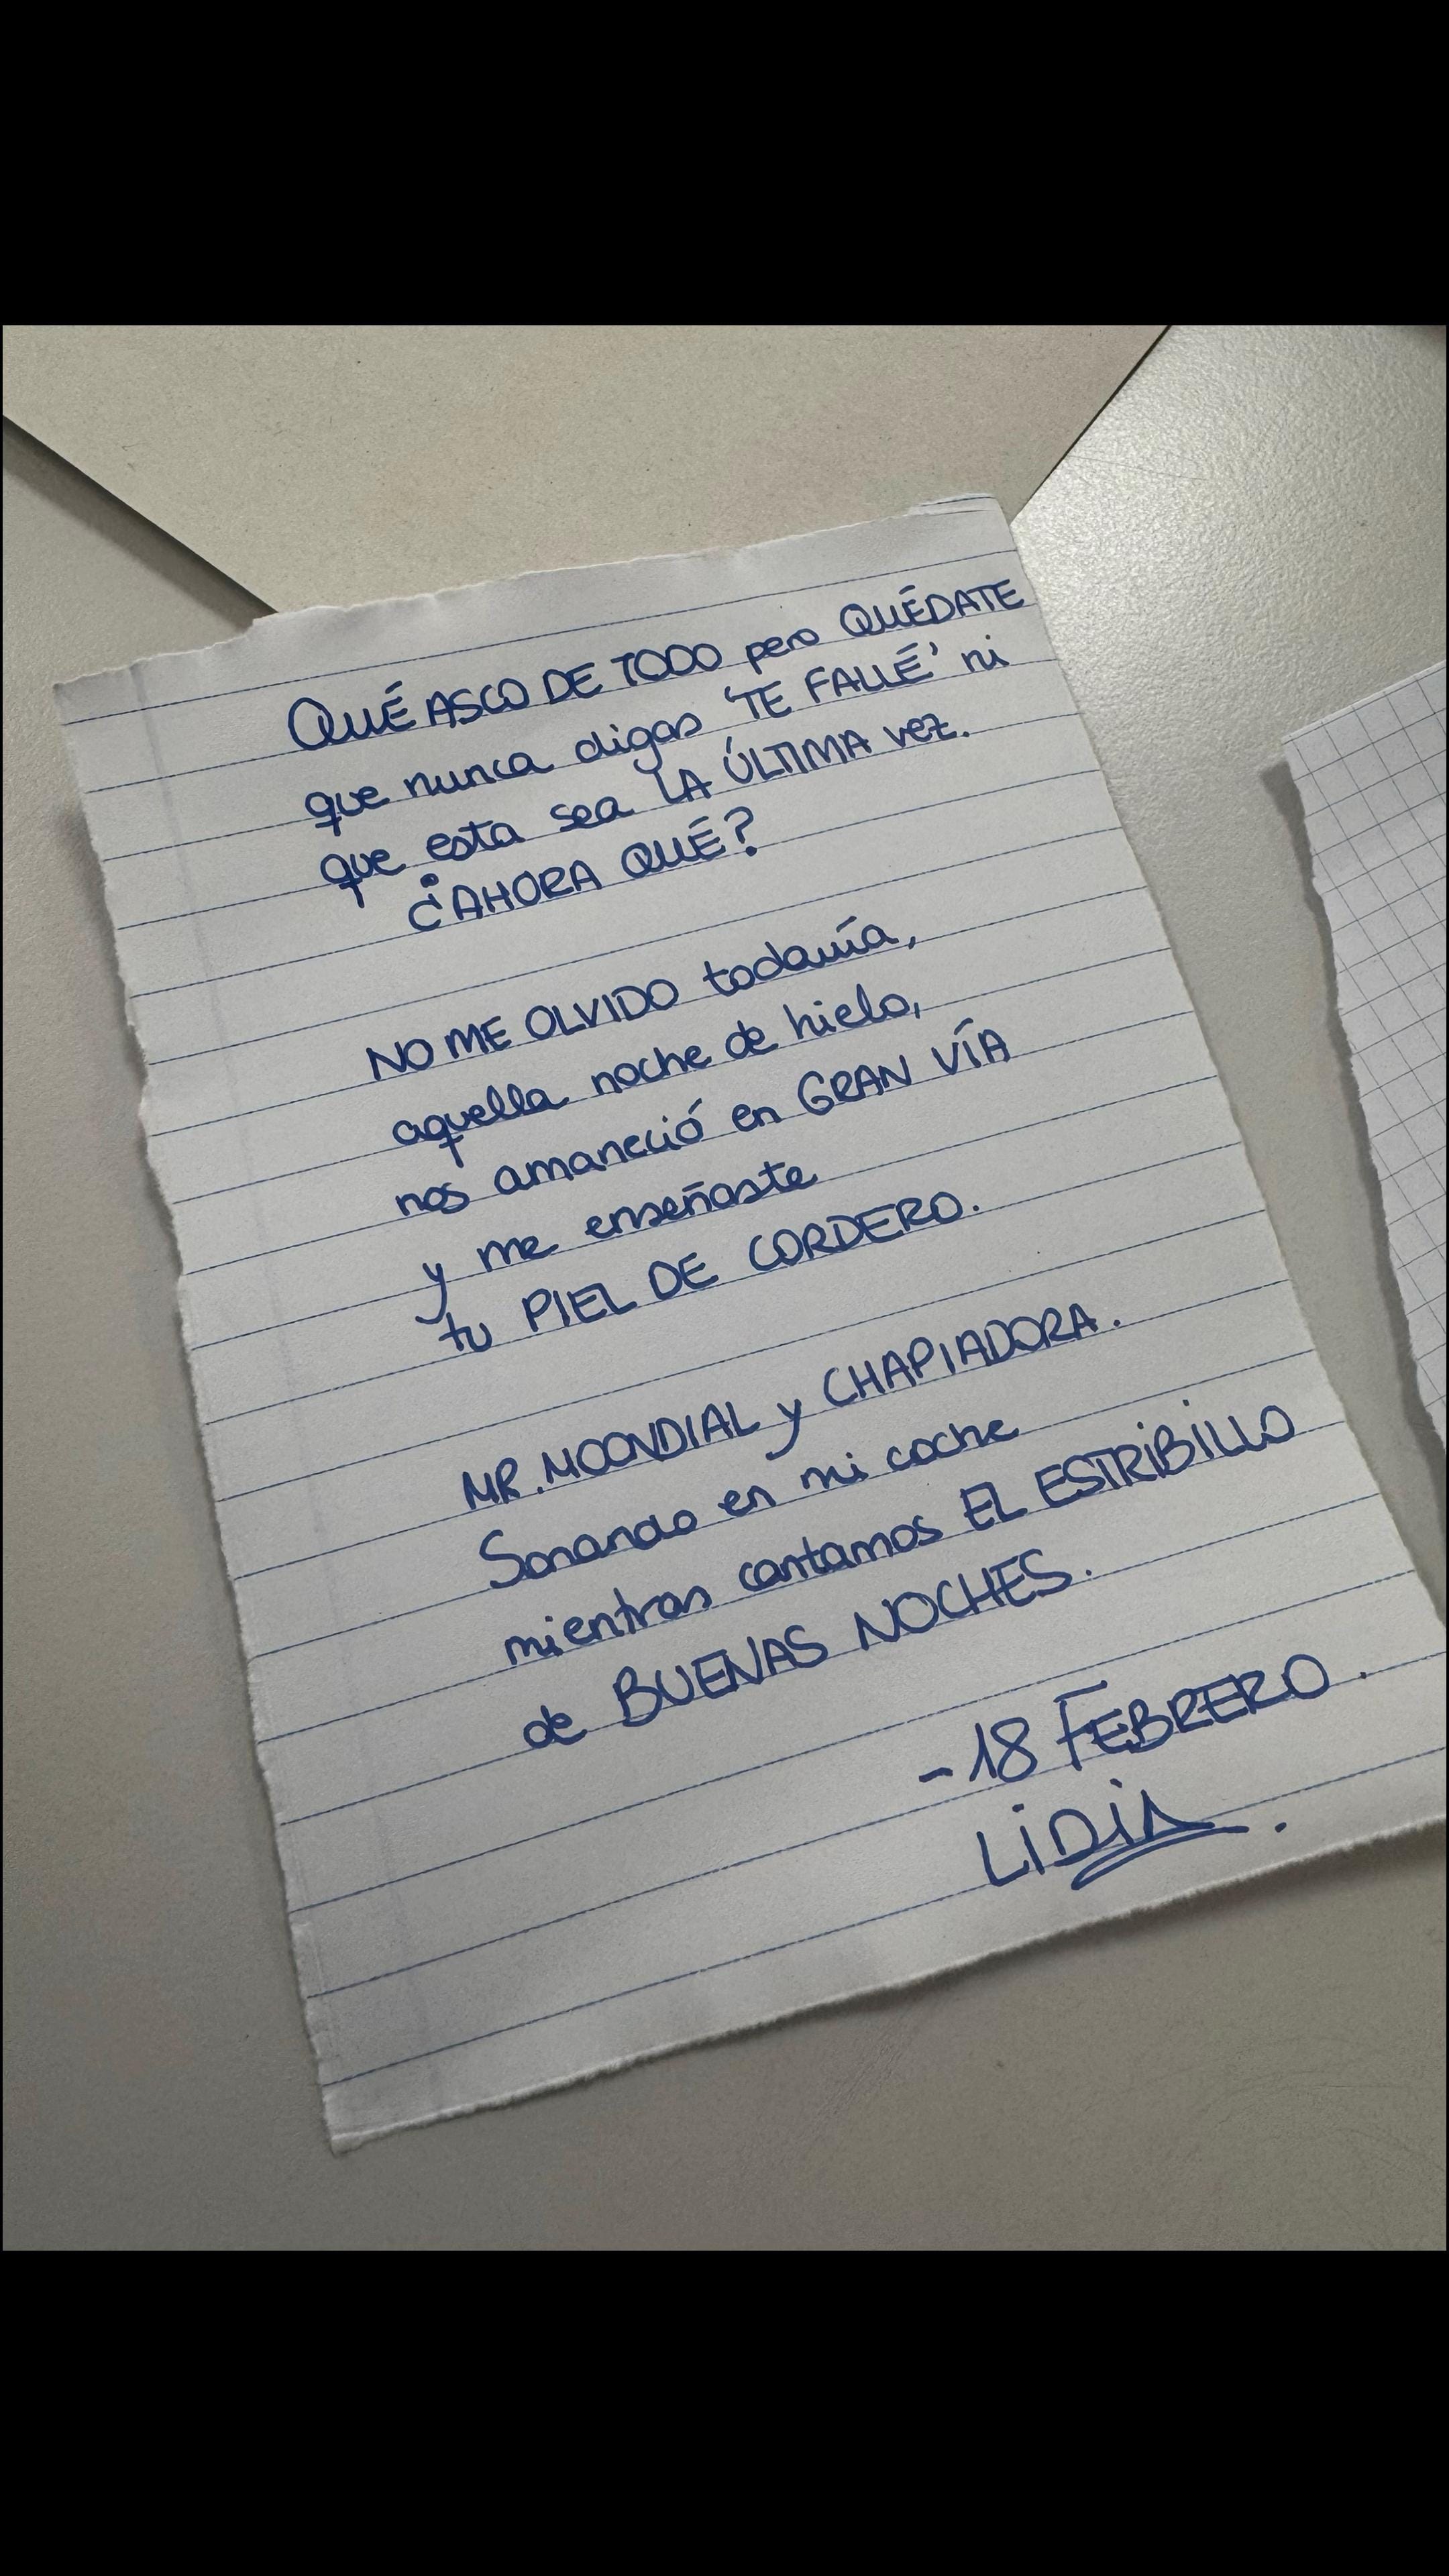 QUÉ ASCO DE TODO pero QUÉDATE
que nunca digas 'TE FALLÉ' ni
que esta sea LA ÚLTIMA vez.
¿AHORA QUÉ?
NO ME OLVIDO todavía,
aquella noche de hielo,
nos amaneció en GRAN VÍA
y me enseñaste
tu PIEL DE CORDERO.
MR. MOONDIAL y CHAPIADORA.
Sonando en mi coche
mientras cantamos EL ESTRIBILLO
de BUENAS NOCHES.
-18 FEBRERO.
LIDIA.